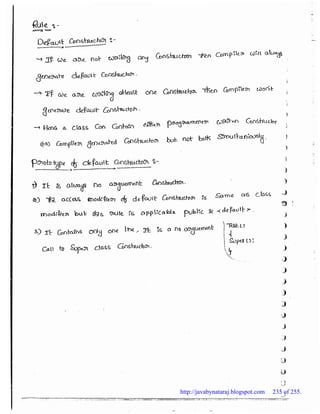 Rule :-
Default Constructor :-
→ If we are not writing any Constructor then Compiler will always
generate default Constructor.
→ If we are writing atleast one Constructor then Compiler won't
generate default Constructor.
→ Hence a class Can Contain either programmer written Constructor
(or) Compiler generated Constructor but not both Simultaniously.
Prototype of default Constructor :-
1) It is always no argument Constructor.
2) The access modifier of default Constructor is Same as class
modifier but this rule is applicable public & <default>.
3) It Contains only one line, It is a no argument
Call to Super class Constructor.
Test()
{
Super();
}
http://javabynataraj.blogspot.com 235 of 255.